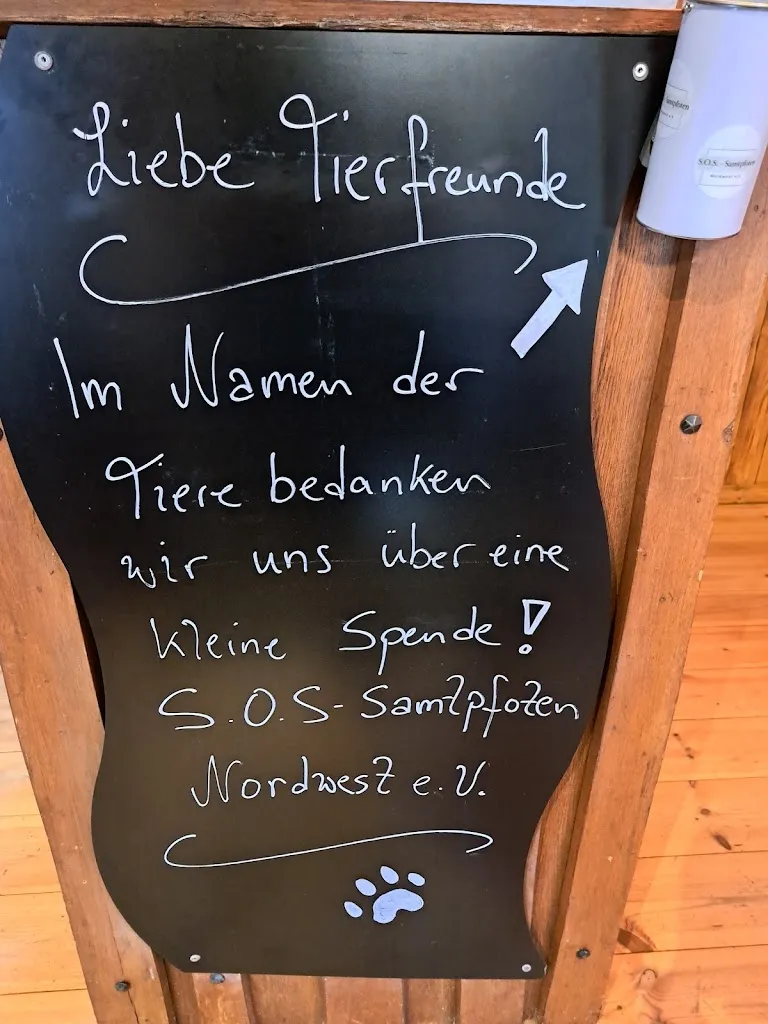 Liebe Tierfreunde
Im Namen der
Tiere bedanken
wir uns über eine
kleine Spende!
S.O.S-Samtpfoten
Nordwest e.V.
S.O.S. - Samtpfoten